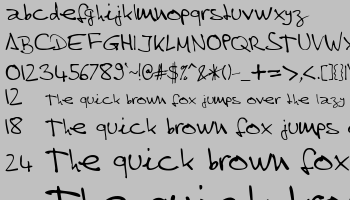 abcdefghijklmnopqrstuvwxyz
ABCDEFGHIJKLMNOPQRSTUVWX
0123456789'~!@#$%^&*()-_+=>,<.[]{}
12 The quick brown fox jumps over the lazy
18 The quick brown fox jumps
24 The quick brown fox